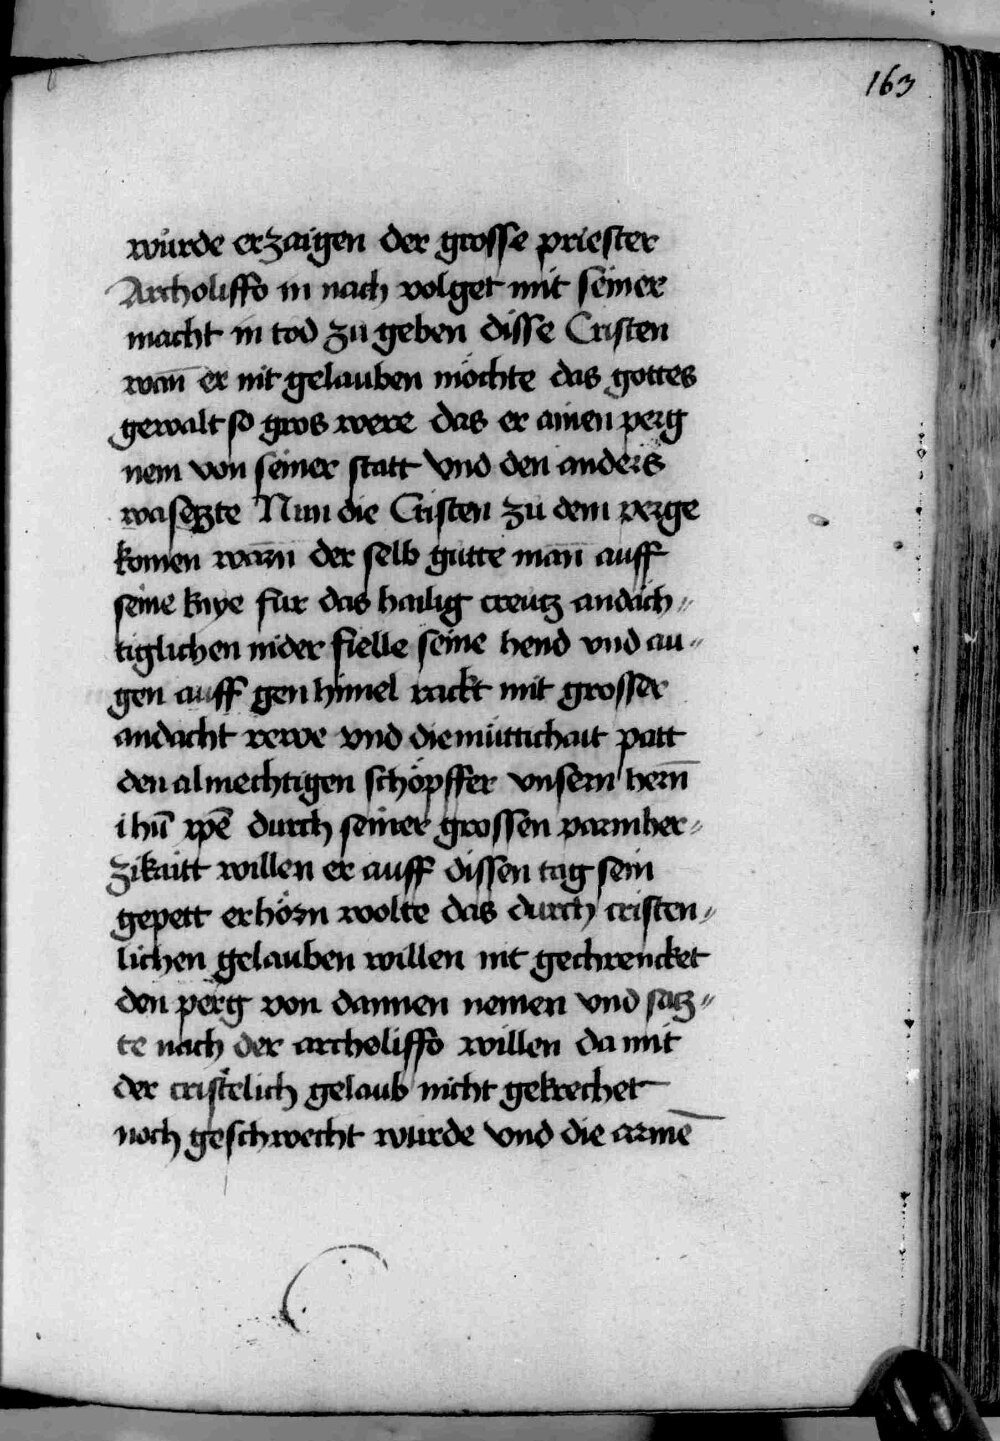 163
wůrde erzaigen der grosse priester
Archoliffo in nach volget mit seiner
macht in tod zu geben disse Cristen
wan̄ er nit gelauben möchte das gottes
gewalt so gros were das er ainen perg
nem von seiner statt vnd den anders
wa seczte Nun die Cristen zu dem perge
komen warn̄ der selb gutte man̄ auff
seine knye fur das hailig creutz andäch⸗
tiglichen nider fielle seine hend vnd au⸗
gen auff gen himel rackt mit grosser
andacht rewe vnd diemüttichait patt
den almechtigen schöpffer vnsern hern̄
ihū xpē durch seiner grossen parmher⸗
zikaitt willen er auff dissen tag sein
gepett erhörn wolte das durch cristen⸗
lichen gelauben willen nit gechrencket
den perg von dannen nemen vnd satz⸗
te nach der archoliffo willen da mit
der cristēlich gelaub nicht gekrechet
noch geschwecht wurde vnd die armē